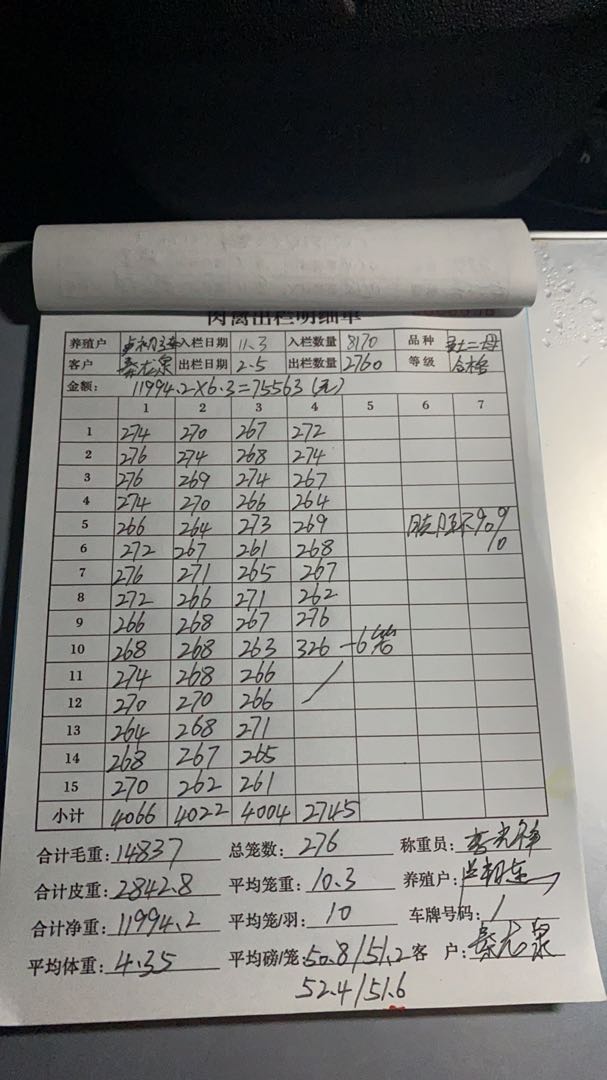 肉禽出栏明细单
养殖户 入栏日期 11.3 入栏数量 8170 品种 土二母
客户 秦龙泉 出栏日期 2.5 出栏数量 2760 等级 合格
金额: 11994.2×6.3=75563(元)
1 2 3 4 5 6 7
1 274 270 267 272
2 276 274 268 274
3 276 269 274 267
4 274 270 266 264
5 266 264 273 269
6 272 267 261 268 10
7 276 271 265 267
8 272 266 271 262
9 266 268 267 276
10 268 268 263 326 -6笼
11 274 268 266
12 270 270 266
13 264 268 271
14 268 267 265
15 270 262 261
小计 4066 4022 4004 2745
合计毛重: 14837 总笼数: 276 称重员:
合计皮重: 2842.8 平均笼重: 10.3 养殖户:
合计净重: 11994.2 平均笼/羽: 10 车牌号码:
平均体重: 4.35 平均磅/笼: 50.8/51.2 客 户: 秦龙泉
52.4/51.6